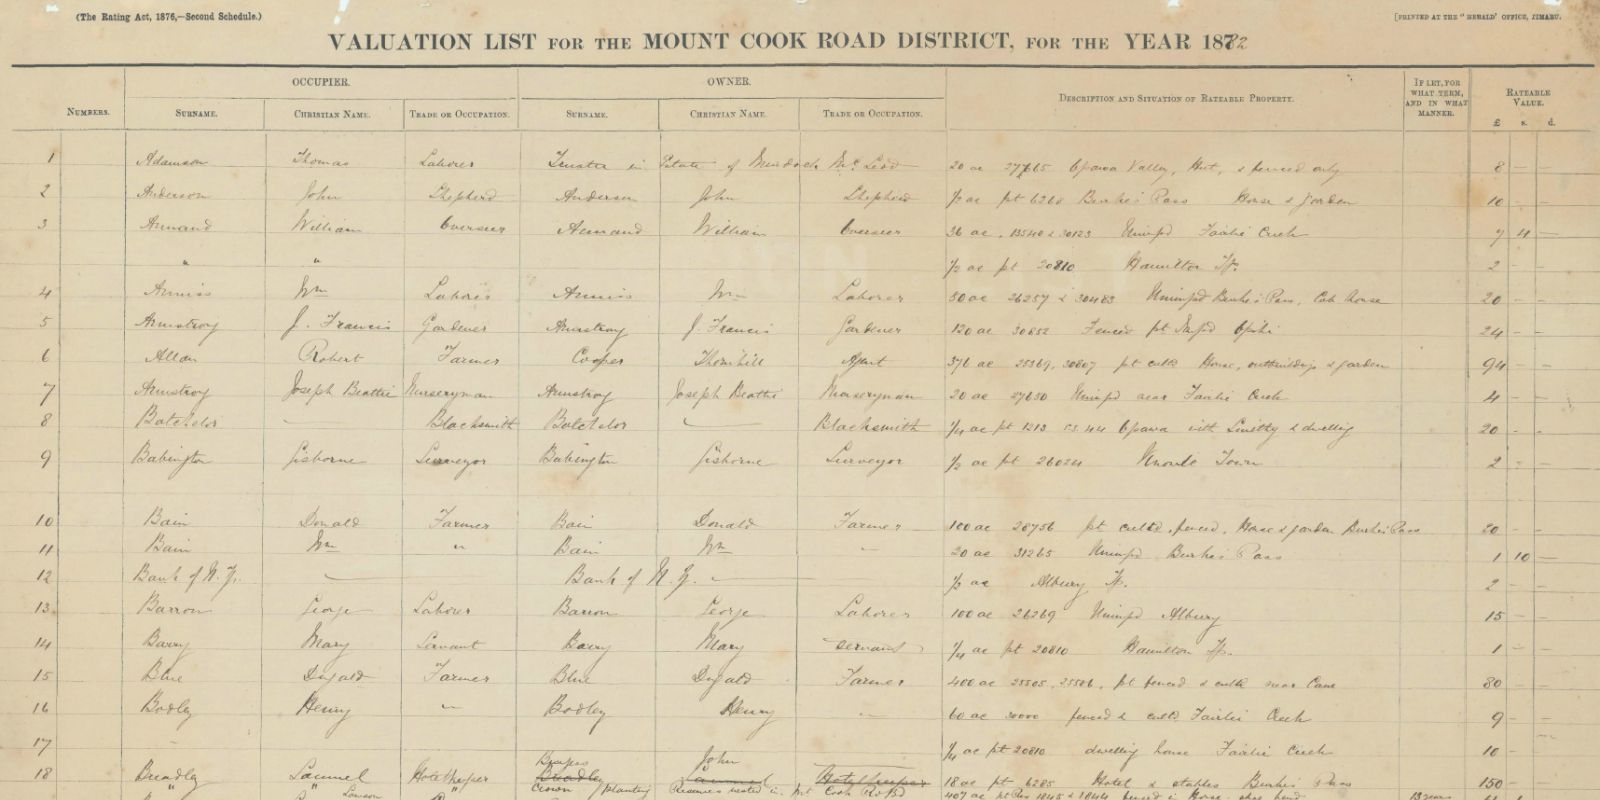 (The Rating Act, 1876,—Second Schedule.)
[PRINTED AT THE "HERALD" OFFICE, TIMARU.
VALUATION LIST FOR THE MOUNT COOK ROAD DISTRICT, FOR THE YEAR 1882
NUMBERS. OCCUPIER. OWNER. DESCRIPTION AND SITUATION OF RATEABLE PROPERTY. IF LET, FOR WHAT TERM, AND IN WHAT MANNER. RATEABLE VALUE.
SURNAME. CHRISTIAN NAME. TRADE OR OCCUPATION. SURNAME. CHRISTIAN NAME. TRADE OR OCCUPATION. £ s. d.
1 Adamson Thomas Laborer Trustee in Estate of Murdoch McLeod 20 ac 27665 Opawa Valley, Hut, & fenced only 8 — —
2 Anderson John Shepherd Anderson John Shepherd 1/2 ac pt 6268 Burke's Pass House & garden 10 — —
3 Annand William Overseer Annand William Overseer 36 ac. 13540 & 30123 Unimpd Fairlie Creek 7 4 —
" " 1/2 ac pt 20810 Hamilton Tp. 2 — —
4 Anniss Wm Laborer Anniss Wm Laborer 80 ac 26257 & 30483 Unimpd Burke's Pass, Cob house 20 — —
5 Armstrong J. Francis Gardener Armstrong J. Francis Gardener 120 ac 30852 Fenced pt Impd Opihi 24 — —
6 Allan Robert Farmer Cooper Thornhill Agent 376 ac 25369, 30807 pt cultd House, outbuildings & garden 94 — —
7 Armstrong Joseph Beattie Nurseryman Armstrong Joseph Beattie Nurseryman 20 ac 27650 Unimpd near Fairlie Creek 4 — —
8 Batchelor — Blacksmith Batchelor — Blacksmith 1/4 ac pt 1213 Opawa with Smithy & dwelling 20 — —
9 Babington Gisborne Surveyor Babington Gisborne Surveyor 1/2 ac pt 26024 Town 2 — —
10 Bain Donald Farmer Bain Donald Farmer 100 ac 28756 pt cultd, fenced, House & garden Burke's Pass 20 — —
11 Bain Wm " Bain Wm " 20 ac 31265 Unimpd Burke's Pass 1 10 —
12 Bank of N.Z. — Bank of N.Z. — 1/2 ac Albury Tp. 2 — —
13 Barron George Laborer Barron George Laborer 100 ac 26269 Unimpd Albury 15 — —
14 Barry Mary Servant Barry Mary Servant 1/4 ac pt 20810 Hamilton Tp. 1 — —
15 Blue Dugald Farmer Blue Dugald Farmer 400 ac 25505, 25506, pt fenced & cultd near Cave 80 — —
16 Bodley Henry " Bodley Henry " 60 ac 30000 fenced & cultd Fairlie Creek 9 — —
17 1/4 ac pt 20810 dwelling house Fairlie Creek 10 — —
John
18 Bradley Samuel Hotelkeeper Bradley Samuel Hotelkeeper 18 ac pt 6285 Hotel & stables Burke's Pass 150 —
" " Crown planting Reserves vested in Mt Cook Rd Bd 13 years